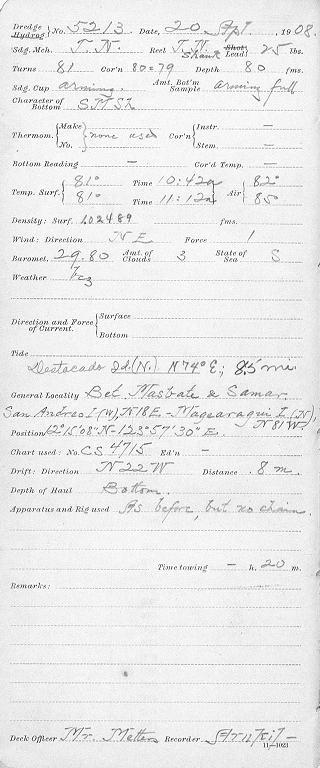 Dredge No. 5213 Date, 20 Apl, 1908.
Hydrog
Sdg. Mch. T.N. Reel T.N. Shot Shank Lead 25 lbs.
Turns 81 Cor'n 80=79 Depth 80 fms.
Sdg. Cup arming. Amt. Bot'm Sample arming full
Character of Bottom S M Sh
Thermom. Make No. none used Cor'n Instr. — Stem. —
Bottom Reading — Cor'd Temp. —
Temp. Surf. 81° Time 10:42a Air 82°
81° Time 11:12a 85°
Density: Surf. 1.02489 fms.
Wind: Direction NE Force 1
Baromet. 29.80 Amt. of Clouds 3 State of Sea S
Weather
Direction and Force of Current. Surface
Bottom
Tide
Destacado Id. (N.) N 74° E; 8.5 mi.
General Locality Bet. Masbate & Samar.
San Andreo I (W), N18E. - Magcaragui I. (N), N81W.
Position 12°15'08"N - 123°57'30"E.
Chart used: No. CS 4715 Ed'n —
Drift: Direction N22W Distance .8 m.
Depth of Haul Bottom.
Apparatus and Rig used As before, but no chain.
Time towing — h. 20 m.
Remarks:
Deck Officer Mr. Recorder
11—1023